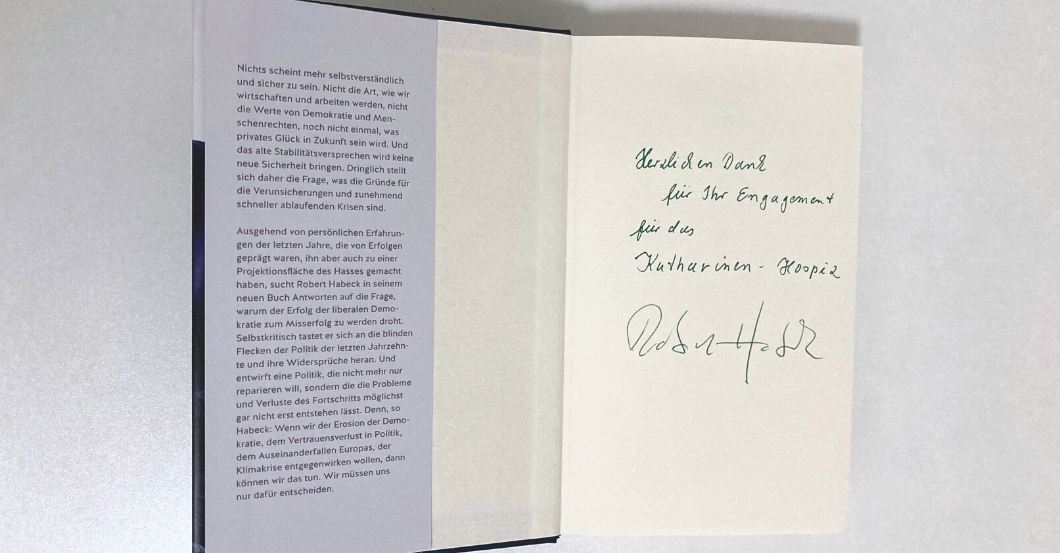 Nichts scheint mehr selbstverständlich
und sicher zu sein. Nicht die Art, wie wir
wirtschaften und arbeiten werden, nicht
die Werte von Demokratie und Men-
schenrechten, noch nicht einmal, was
privates Glück in Zukunft sein wird. Und
das alte Stabilitätsversprechen wird keine
neue Sicherheit bringen. Dringlich stellt
sich daher die Frage, was die Gründe für
die Verunsicherungen und zunehmend
schneller ablaufenden Krisen sind.
Ausgehend von persönlichen Erfahrun-
gen der letzten Jahre, die von Erfolgen
geprägt waren, ihn aber auch zu einer
Projektionsfläche des Hasses gemacht
haben, sucht Robert Habeck in seinem
neuen Buch Antworten auf die Frage,
warum der Erfolg der liberalen Demo-
kratie zum Misserfolg zu werden droht.
Selbstkritisch tastet er sich an die blinden
Flecken der Politik der letzten Jahrzehn-
te und ihre Widersprüche heran. Und
entwirft eine Politik, die nicht mehr nur
reparieren will, sondern die die Probleme
und Verluste des Fortschritts möglichst
gar nicht erst entstehen lässt. Denn, so
Habeck: Wenn wir der Erosion der Demo-
kratie, dem Vertrauensverlust in Politik,
dem Auseinanderfallen Europas, der
Klimakrise entgegenwirken wollen, dann
können wir das tun. Wir müssen uns
nur dafür entscheiden.
Herzlichen Dank
für Ihr Engagement
für das
Katharinen-Hospiz
Robert Habeck